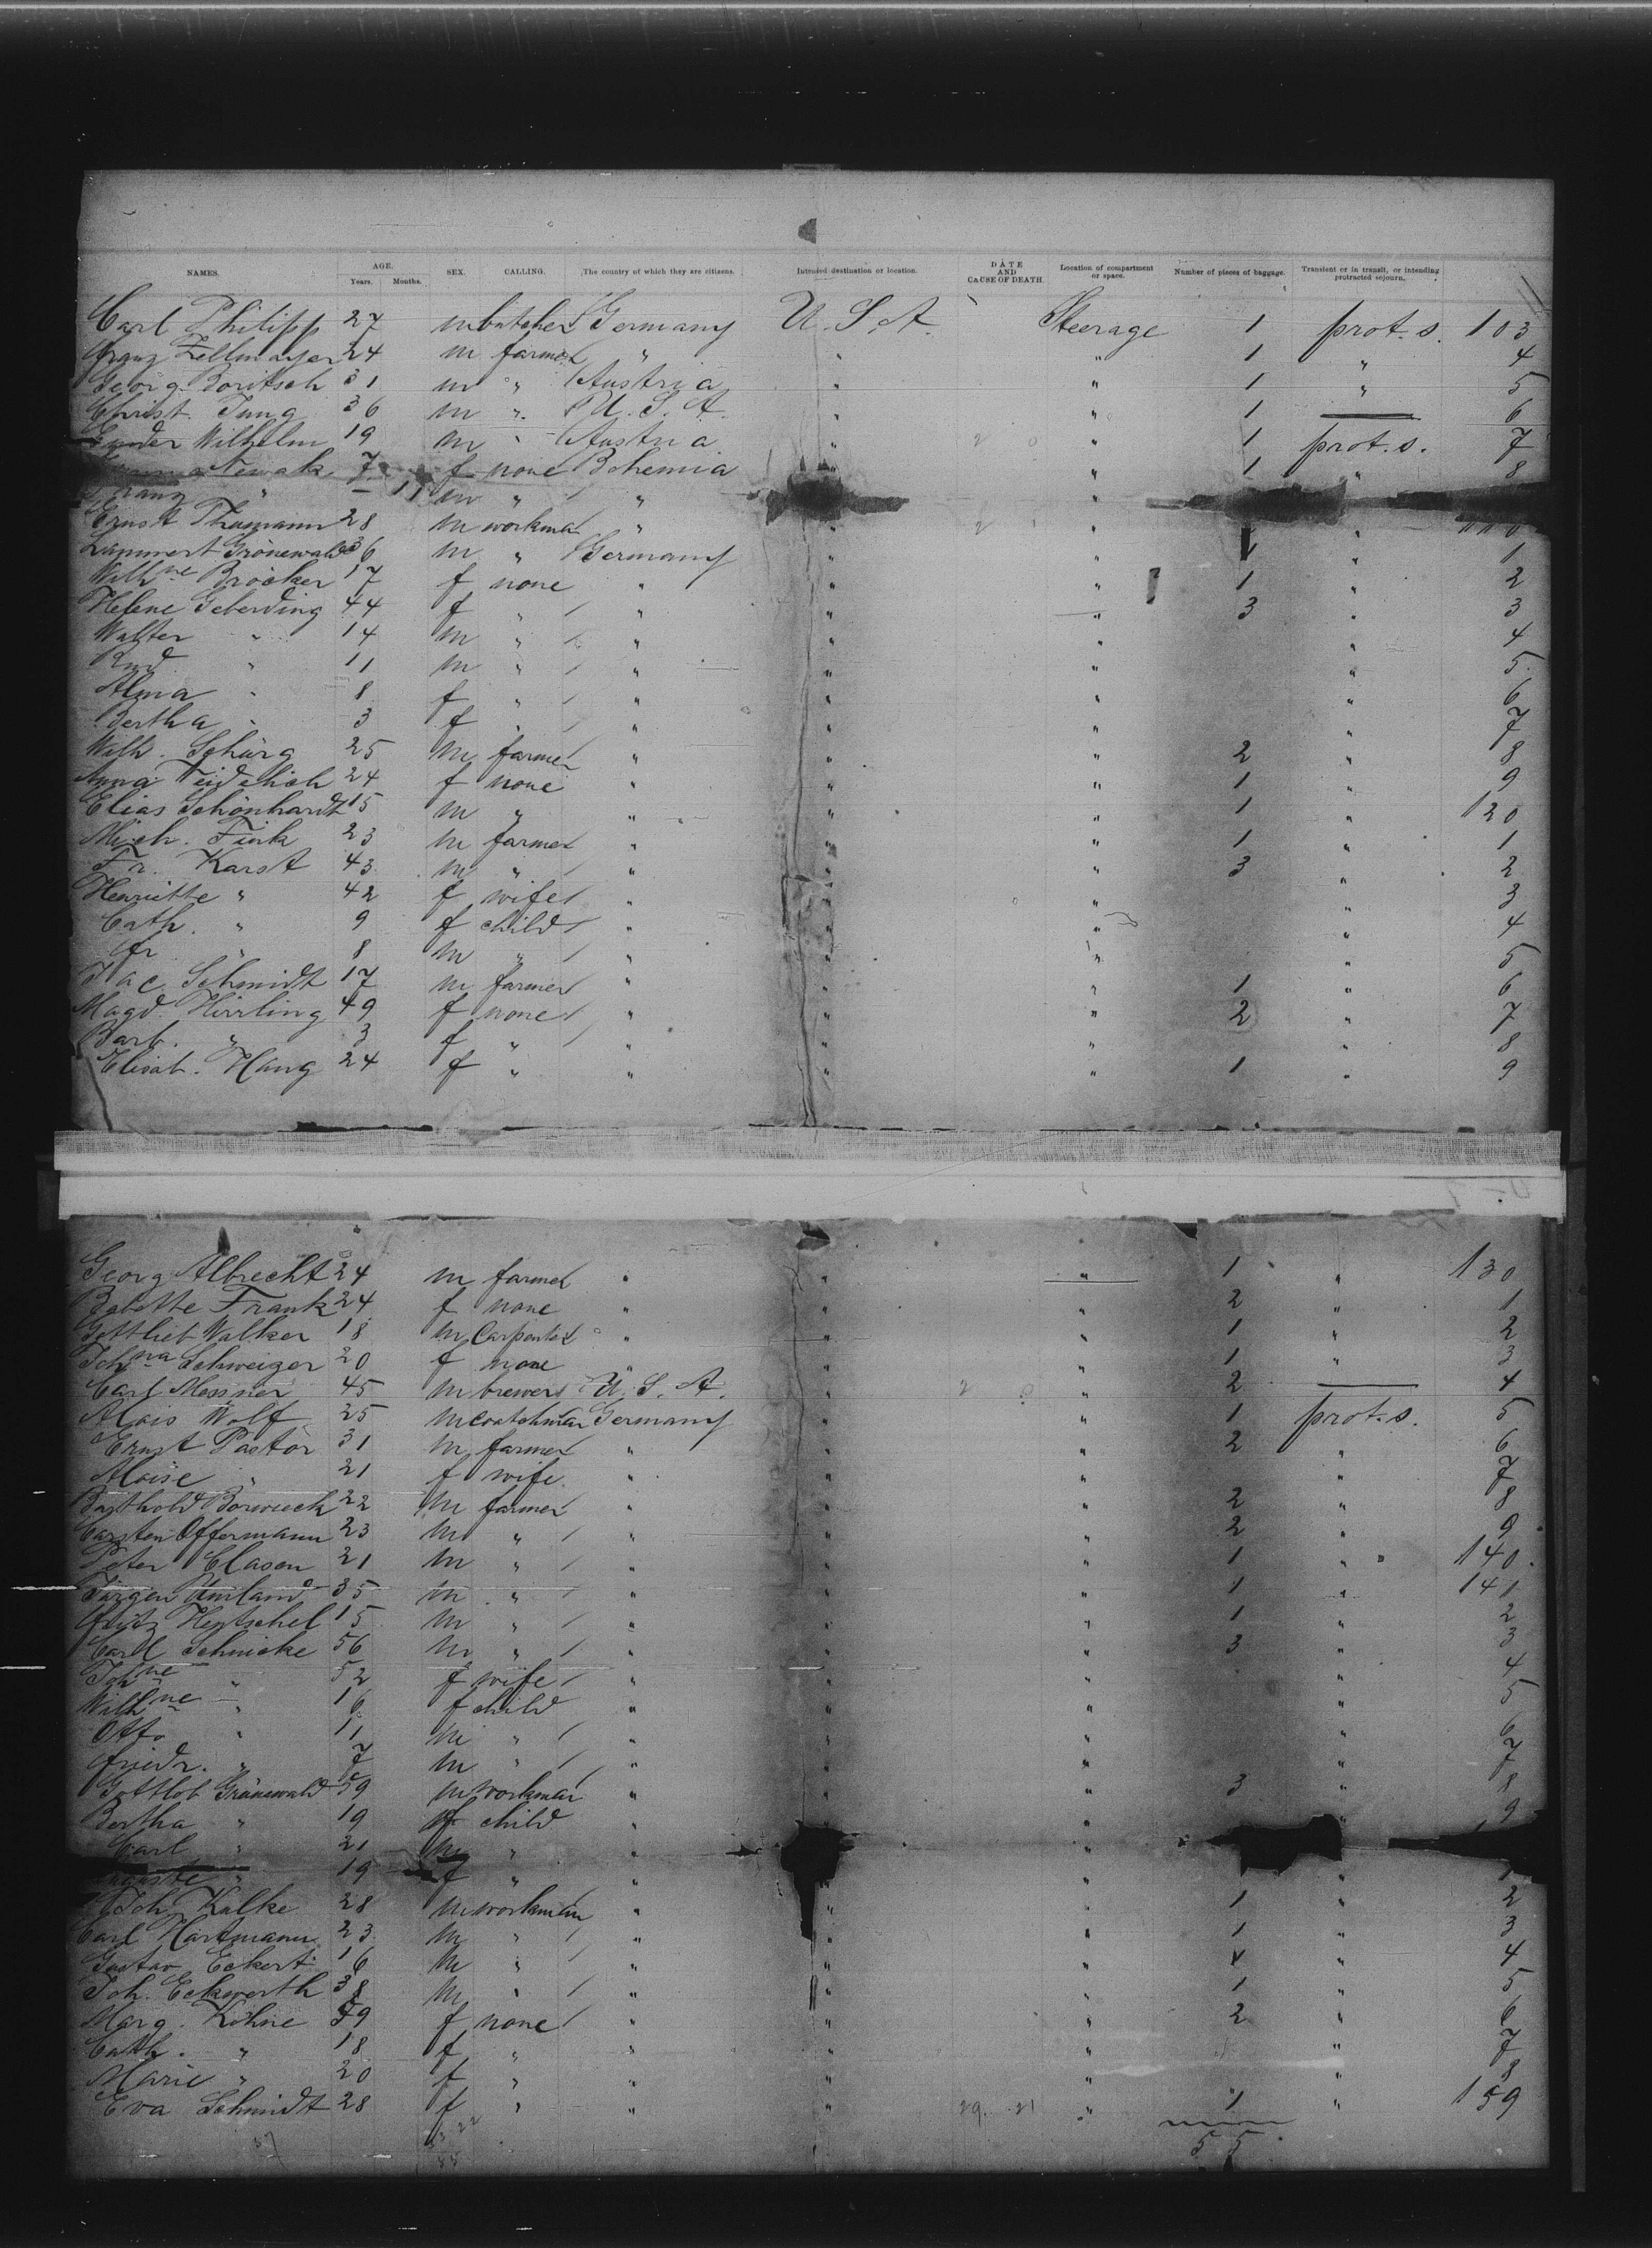 NAMES. AGE. Years. Months. SEX. CALLING. The country of which they are citizens. Intended destination or location. DATE AND CAUSE OF DEATH. Location of compartment or space. Number of pieces of baggage. Transient or in transit, or intending protracted sojourn.
Carl Philipp 27 m butcher Germany U. S. A. Steerage 1 prot. s. 103
Franz Zellmayer 24 m farmer " " " 1 " 4
Georg Boritsch 31 m " Austria " " 1 " 5
Christ. Jung 36 m " U. S. A. " " 1 — 6
Wilhelm 19 m " Austria " " 1 prot. s. 7
Nowak 7 f none Bohemia " " 1 " 8
Franz " – 11 m " "
Ernst Thumann 28 m workman " " " " 110
Lammert Grönewald 36 m " Germany " " 1 " 1
Wilhne Bröcker 17 f none " " " 1 " 2
Helene Geberding 44 f " " " " 3 " 3
Walter " 14 m " " " " " 4
Rud " 11 m " " " " " 5
Alma " 8 f " " " " " 6
Bertha " 3 f " " " " " 7
Wilh. Schürg 25 m farmer " " " 2 " 8
Anna 24 f none " " " 1 " 9
Elias Schönhardt 15 m " " " " 1 " 120
Mich. Fink 23 m farmer " " " 1 " 1
Fr. Karst 43 m " " " " 3 " 2
Henriette " 42 f wife " " " " 3
Cath. " 9 f child " " " " 4
Fr " 8 m " " " " " 5
Jac. Schmidt 17 m farmer " " " 1 " 6
Magd. Hirrling 49 f none " " " 2 " 7
Barb. " 3 f " " " " " 8
Elisab. Haug 24 f " " " " 1 " 9
Georg Albrecht 24 m farmer " " " 1 " 130
Babette Frank 24 f none " " " 2 " 1
Gottlieb Walker 18 m Carpenter " " " 1 " 2
Johna Schweizer 20 f none " " " 1 " 3
Carl Messner 45 m brewer U. S. A. " " 2 — 4
Alois Wolf 25 m coatchman Germany " " 1 prot. s. 5
Ernst Pastor 31 m farmer " " " 2 " 6
Aloise " 21 f wife " " " " 7
Barthold Borwieck 22 m farmer " " " 2 " 8
Carsten Offermann 23 m " " " " 2 " 9
Peter Clasen 21 m " " " " 1 " 140
Jürgen Umland 35 m " " " " 1 " 141
Fritz Hentschel 15 m " " " " 1 " 2
Carl Schnicke 56 m " " " " 3 " 3
Johne " 52 f wife " " " " 4
Wilhne " 16 f child " " " " 5
Otto " 11 m " " " " " 6
Friedr. " 7 m " " " " " 7
Gottlob Grünewald 59 m workman " " " 3 " 8
Bertha " 19 f child " " " " 9
Carl " 21 m " " "
Auguste " 19 f " " " " " 1
Joh. Kalke 28 m workman " " " 1 " 2
Carl Hartmann 23 m " " " " 1 " 3
Gustav Eckert 16 m " " " " 4
Joh. Eckwerth 38 m " " " " 1 " 5
Marg. Köhne 59 f none " " " 2 " 6
Cath. " 18 f " " " " " 7
Marie " 20 f " " " " " 8
Eva Schmidt 28 f " " " 29. 21 " 1 " 159
55